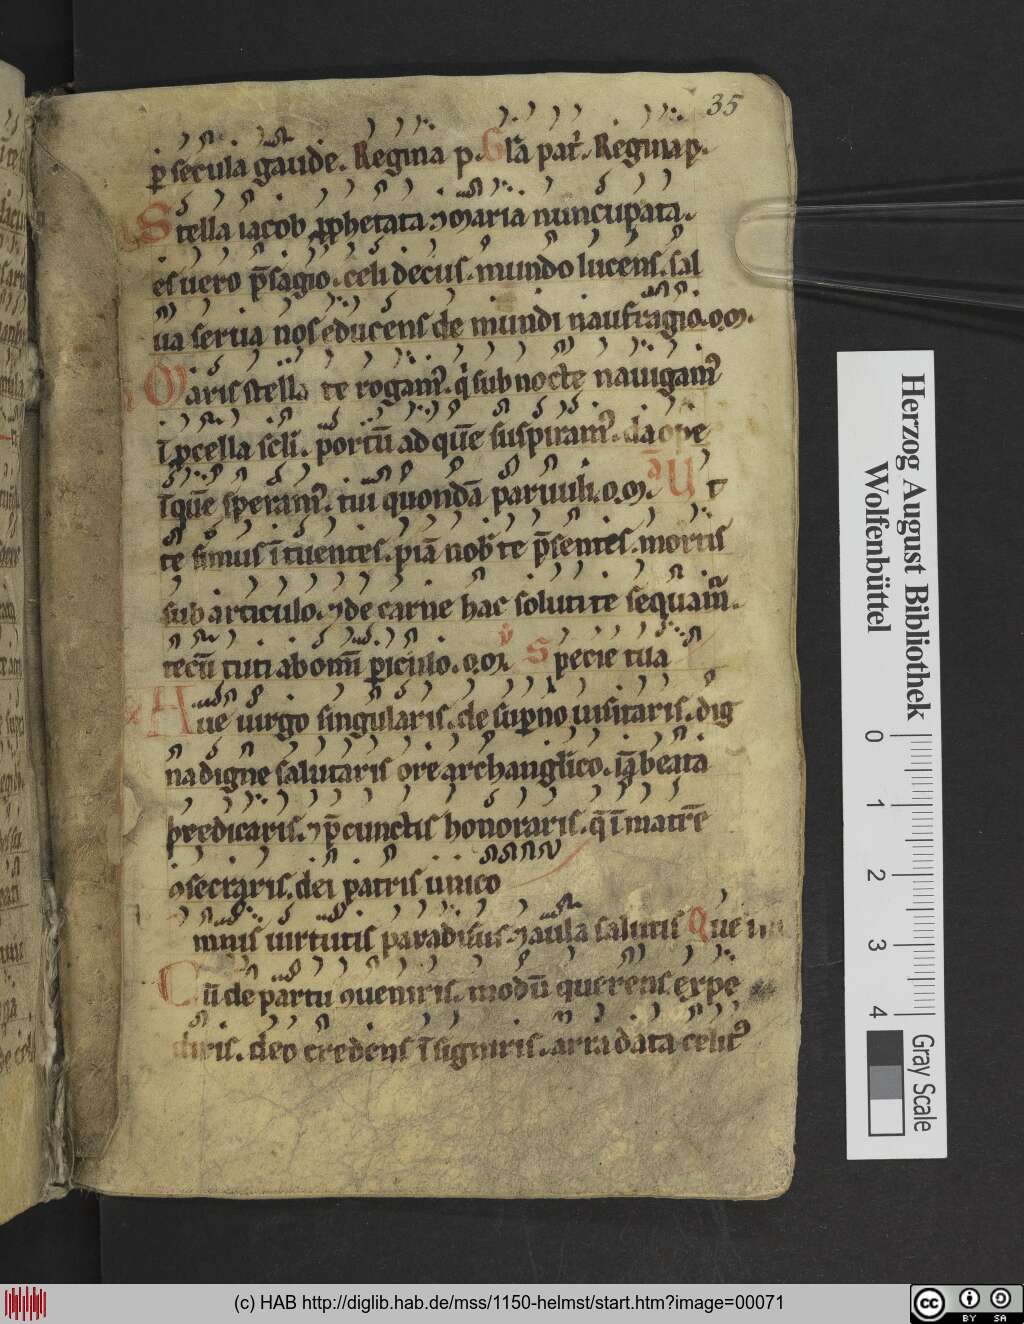 35
ꝑ secula gaude. Regina p. Gl̄a pat᷑. Regina p.
Stella iacob ꝓphetata ⁊ maria nuncupata.
es uero p̄sagio. celi decus. mundo lucens. sal
ua serua nos educens de mundi naufragio. o. m.
Maris stella te rogamꝰ. q̇ sub nocte nauigamꝰ
ī ꝓcella sc̄li. portū ad quē suspiramꝰ. da ope
ī quē speramꝰ. tui quondā paruuli. o. m. Ut
te simus ītuentes. piā nob̄ te p̄sentes. mortis
sub articulo. ⁊ de carne hac soluti te sequam̄.
tecū tuti ab omī ꝑiculo. o. m. V̄ Specie tua
Aue uirgo singularis. de suꝑno uisitaris. dig
na digne salutaris ore archangl̄ico. ī q̄ beata
predicaris. ⁊ p̄ cunctis honoraris. q̄ ī matrē
ꝯsecraris. dei patris unico
mnis uirtutis paradisus. ⁊ aula salutis Que
Cū de partu ꝯueniris. modū querens expe
diris. deo credens ī signiris. arra data celitꝰ
Herzog August Bibliothek
Wolfenbüttel
0 1 2 3 4
Gray Scale
(c) HAB http://diglib.hab.de/mss/1150-helmst/start.htm?image=00071
cc BY SA